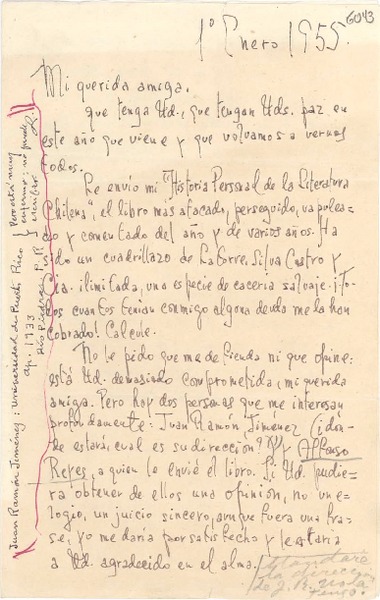 6043
1º Enero 1955.
Mi querida amiga.
que tenga Ud., que tengan Uds. paz en
este año que viene y que volvamos a vernos
todos.
Le envío mi "Historia Personal de la Literatura
Chilena", el libro más atacado, perseguido, vapulea-
do y comentado del año y de varios años. Ha
sido un cuadrillazo de Latorre, Silva Castro y
Cía. ilimitada, una especie de cacería salvaje. ¡To-
dos cuantos tenían conmigo alguna deuda me la han
cobrado! Calcule.
No le pido que me defienda ni que opine:
está Ud. demasiado comprometida, mi querida
amiga. Pero hay dos personas que me interesan
profundamente: Juan Ramón Jiménez (¿dón-
de estará, cual es su dirección?) y Alfonso
Reyes, a quien le envié el libro. Si Ud. pudie-
ra obtener de ellos una opinión, no un e-
logio, un juicio sincero, aunque fuera una fra-
se, yo me daría por satisfecho y le estaría
a Ud. agradecido en el alma.
la dirección
de J. R. No la
tengo.
Juan Ramón Jiménez: Universidad de Puerto Rico
Ap. 1933
Río Piedras, P.R.
Pero está muy
enfermo; no puede
escribir